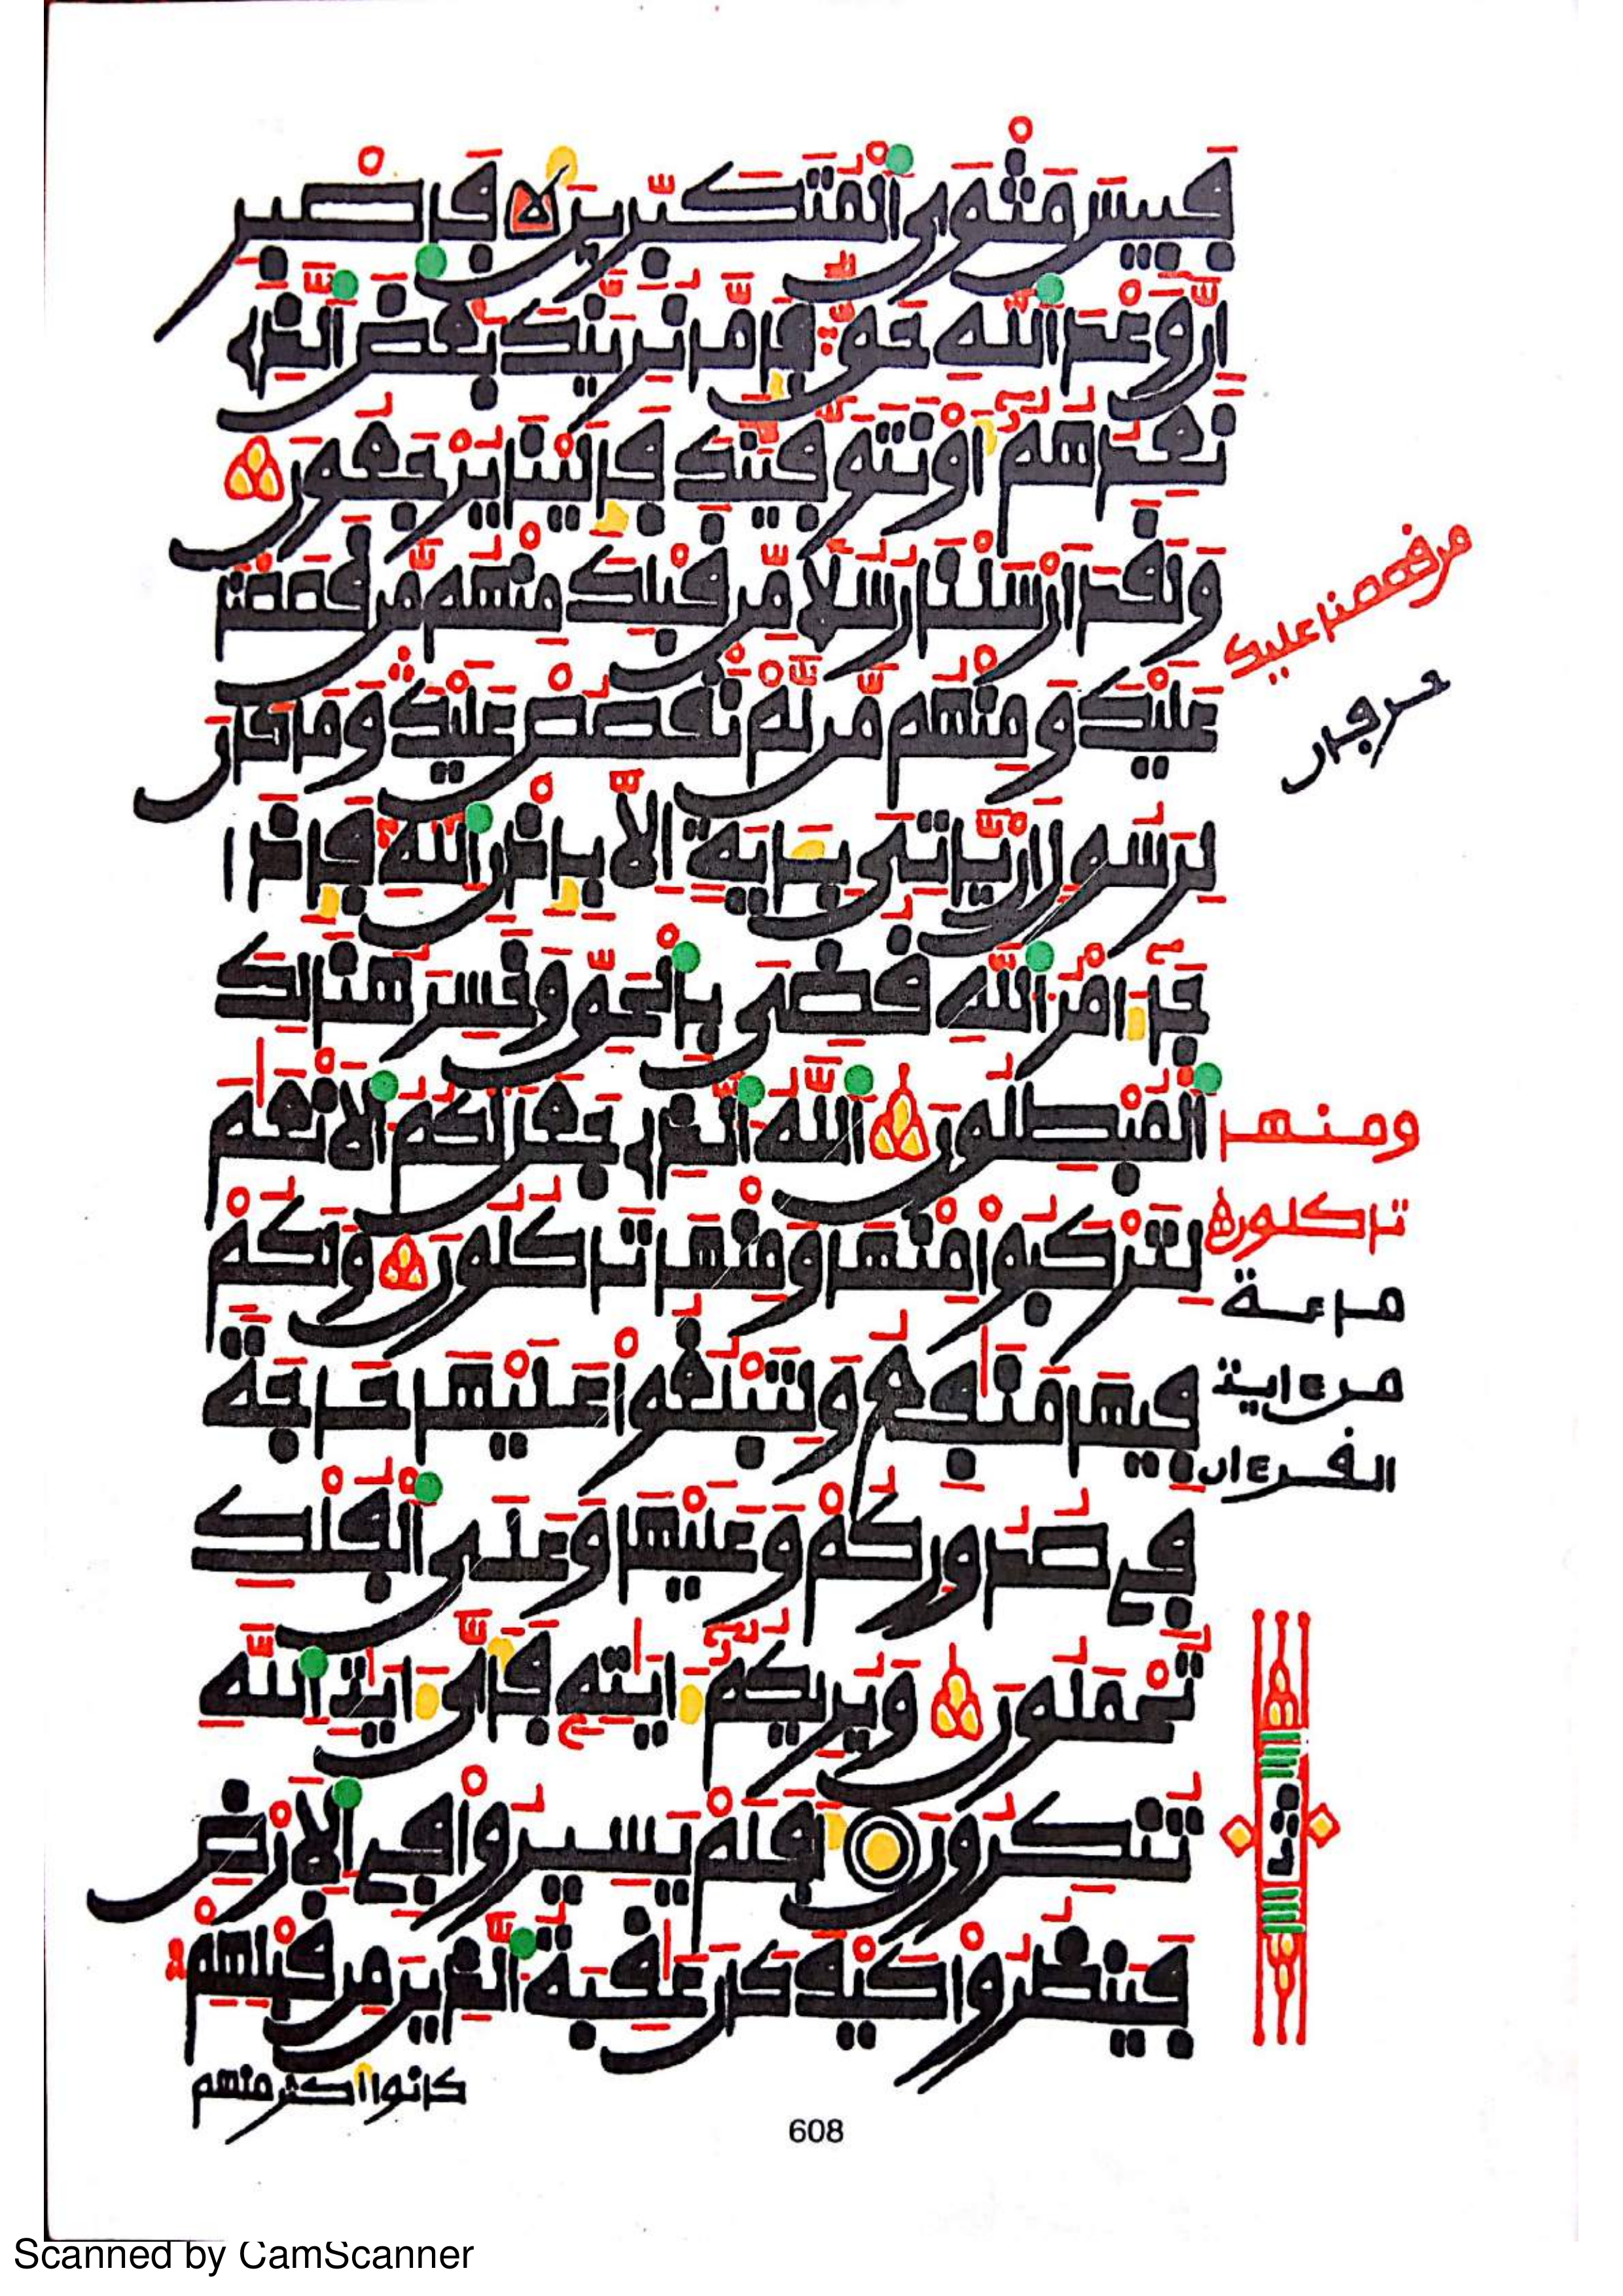 فَبِيسَ مَثْوَى اَلْمُتَكَبِّرِينَ فَاصْبِرْ
اِنَّ وَعْدَ اَللَّهِ حَقٌّ فَإِمَّا نُرِيَنَّكَ بَعْضَ اَلَّذِے
نَعِدُهُمُ أَوْ نَتَوَفَّيَنَّكَ فَإِلَيْنَا يُرْجَعُونَ
وَلَقَدَ اَرْسَلْنَا رُسُلًا مِّن قَبْلِكَ مِنْهُم مَّن قَصَصْنَا
عَلَيْكَ وَمِنْهُم مَّن لَّمْ نَقْصُصْ عَلَيْكَ وَمَا كَانَ
لِرَسُولٍ اَنْ يَّاتِيَ بِـَٔايَةٍ اِلَّا بِإِذْنِ اِللَّهِ فَإِذَا
جَآءَ امْرُ اَللَّهِ قُضِيَ بِالْحَقِّ وَخَسِرَ هُنَالِكَ
اَلْمُبْطِلُونَ اَللَّهُ اَلَّذِے جَعَلَ لَكُمُ اَلَانْعَٰمَ
لِتَرْكَبُواْ مِنْهَا وَمِنْهَا تَاكُلُونَ وَلَكُمْ
فِيهَا مَنَٰفِعُ وَلِتَبْلُغُواْ عَلَيْهَا حَاجَةً
فِے صُدُورِكُمْ وَعَلَيْهَا وَعَلَى اَلْفُلْكِ
تُحْمَلُونَ وَيُرِيكُمُ ءَايَٰتِهِ فَأَيَّ ءَايَٰتِ اِللَّهِ
تُنكِرُونَ أَفَلَمْ يَسِيرُواْ فِے اِلَارْضِ
فَيَنظُرُواْ كَيْفَ كَانَ عَٰقِبَةُ اُلَّذِينَ مِن قَبْلِهِمْ
كانوا اكثر منهم
من قصصنا عليك
ومنها
تاكلون
ماعة
من ءاية
القرءان
ثمن
608
Scanned by CamScanner